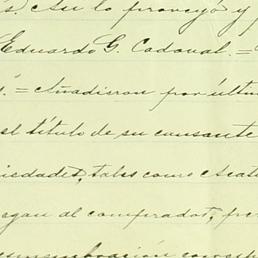 s). Así lo proveyó y
Eduardo G. Cadaval. =
s." = Añadieron por últi
el título de su causante
iedades, tales como
egan al comprador,